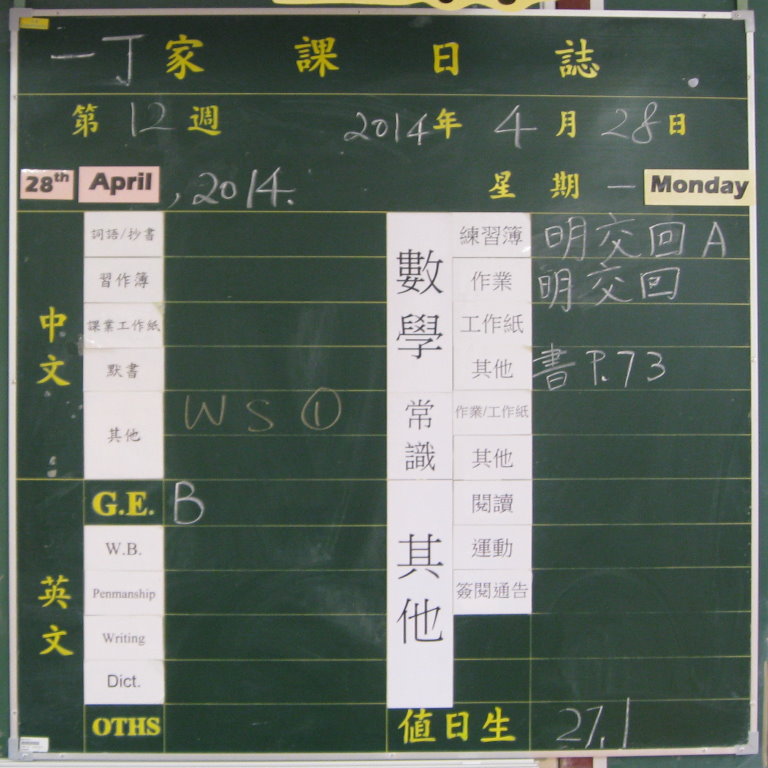 一丁家課日誌
第12週 2014年4月28日
28th April, 2014. 星期一 Monday
中文
詞語/抄書
習作簿
課業工作紙
默書
其他 WS①
英文
G.E. B
W.B.
Penmanship
Writing
Dict.
OTHS
數學
練習簿 明交回A
作業 明交回
工作紙
其他 書P.73
常識
作業/工作紙
其他
其他
閱讀
運動
簽閱通告
值日生 27,1